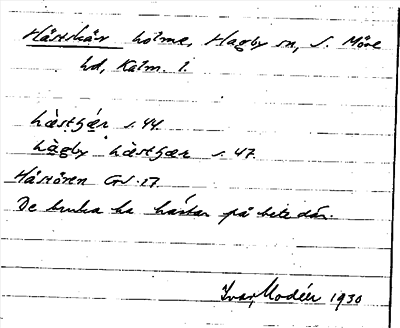 Hästskär holme, Hagby sn, S. Möre
hd, Kalm. l.
hästʂæ̀r s. 44.
hàgby hästʂær s. 47.
Hästören GS. 17.
De bruka ha hästar på bete där.
Ivar Modéer 1930